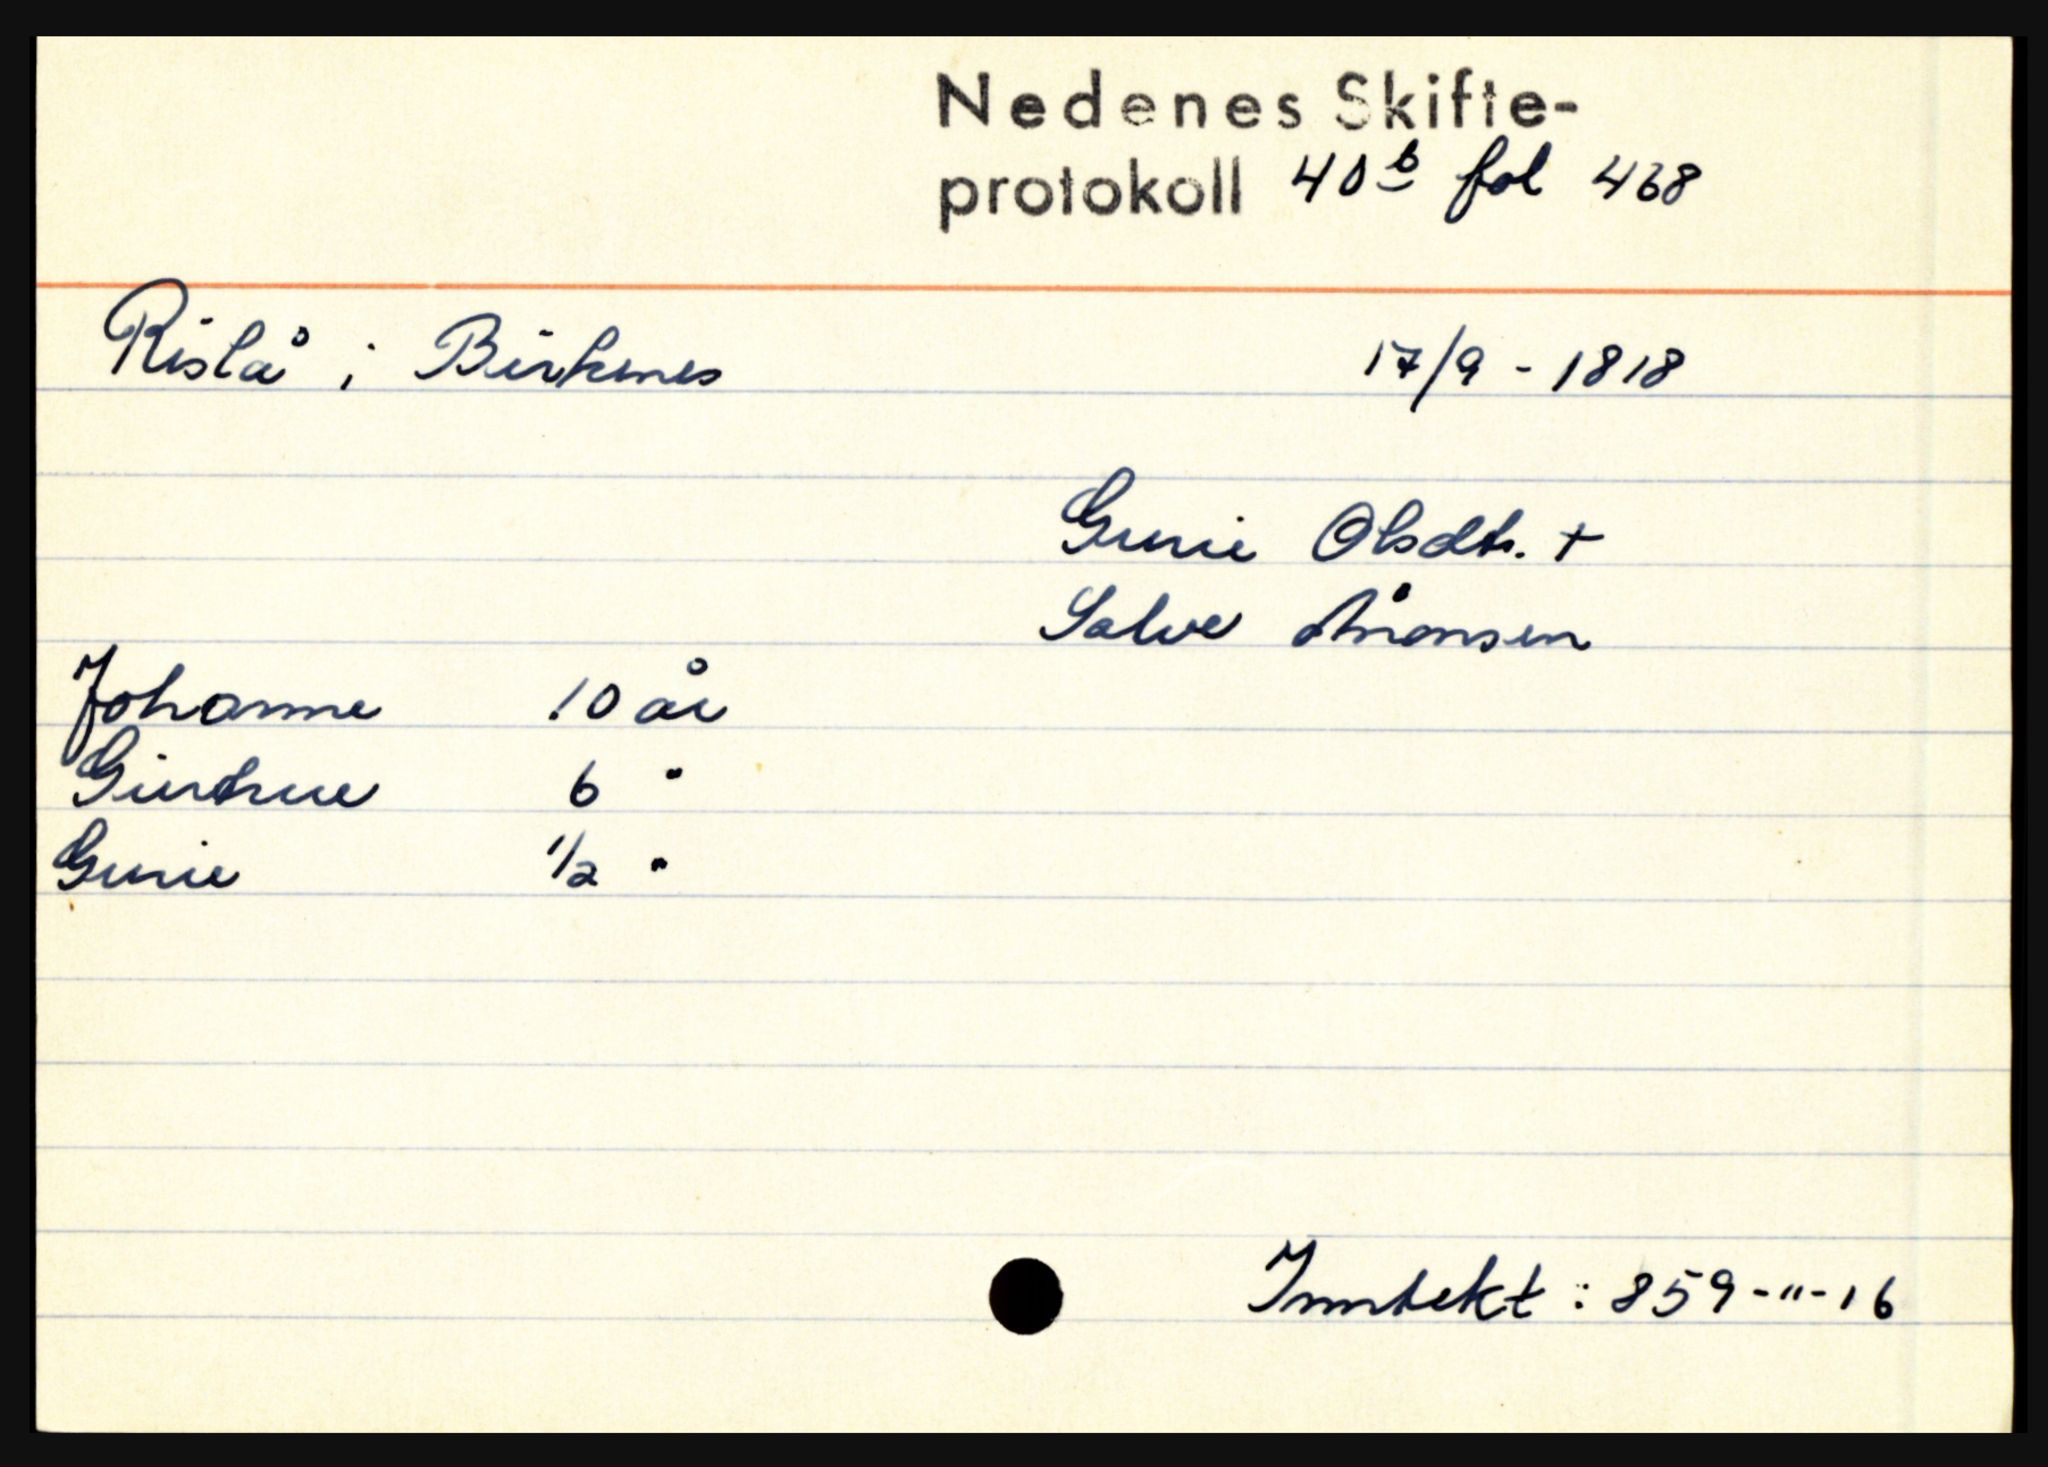 Nedenes Skifte-
protokoll 40 b fol 468
Rislå i Birkenes 17/9 - 1818
Gunie Olsdtr. +
Salve Ånonsen
Johanne 10 år
Gunie 1/2 "
6 "
Inntekt : 859-"-16